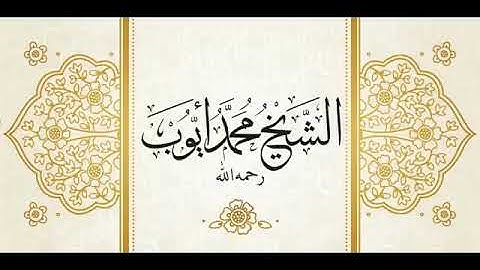 الشَّيْخُ مُحَمَّد أَيُّوب
رحمه الله